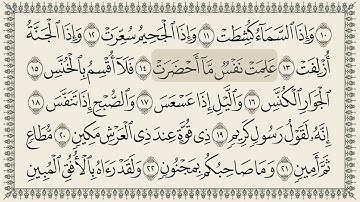 ١٠ وَإِذَا ٱلسَّمَآءُ كُشِطَتۡ ١١ وَإِذَا ٱلۡجَحِيمُ سُعِّرَتۡ ١٢ وَإِذَا ٱلۡجَنَّةُ
أُزۡلِفَتۡ ١٣ عَلِمَتۡ نَفۡسٞ مَّآ أَحۡضَرَتۡ ١٤ فَلَآ أُقۡسِمُ بِٱلۡخُنَّسِ ١٥
ٱلۡجَوَارِ ٱلۡكُنَّسِ ١٦ وَٱلَّيۡلِ إِذَا عَسۡعَسَ ١٧ وَٱلصُّبۡحِ إِذَا تَنَفَّسَ ١٨
إِنَّهُۥ لَقَوۡلُ رَسُولٖ كَرِيمٖ ١٩ ذِي قُوَّةٍ عِندَ ذِي ٱلۡعَرۡشِ مَكِينٖ ٢٠ مُّطَاعٖ
ثَمَّ أَمِينٖ ٢١ وَمَا صَاحِبُكُم بِمَجۡنُونٖ ٢٢ وَلَقَدۡ رَءَاهُ بِٱلۡأُفُقِ ٱلۡمُبِينِ